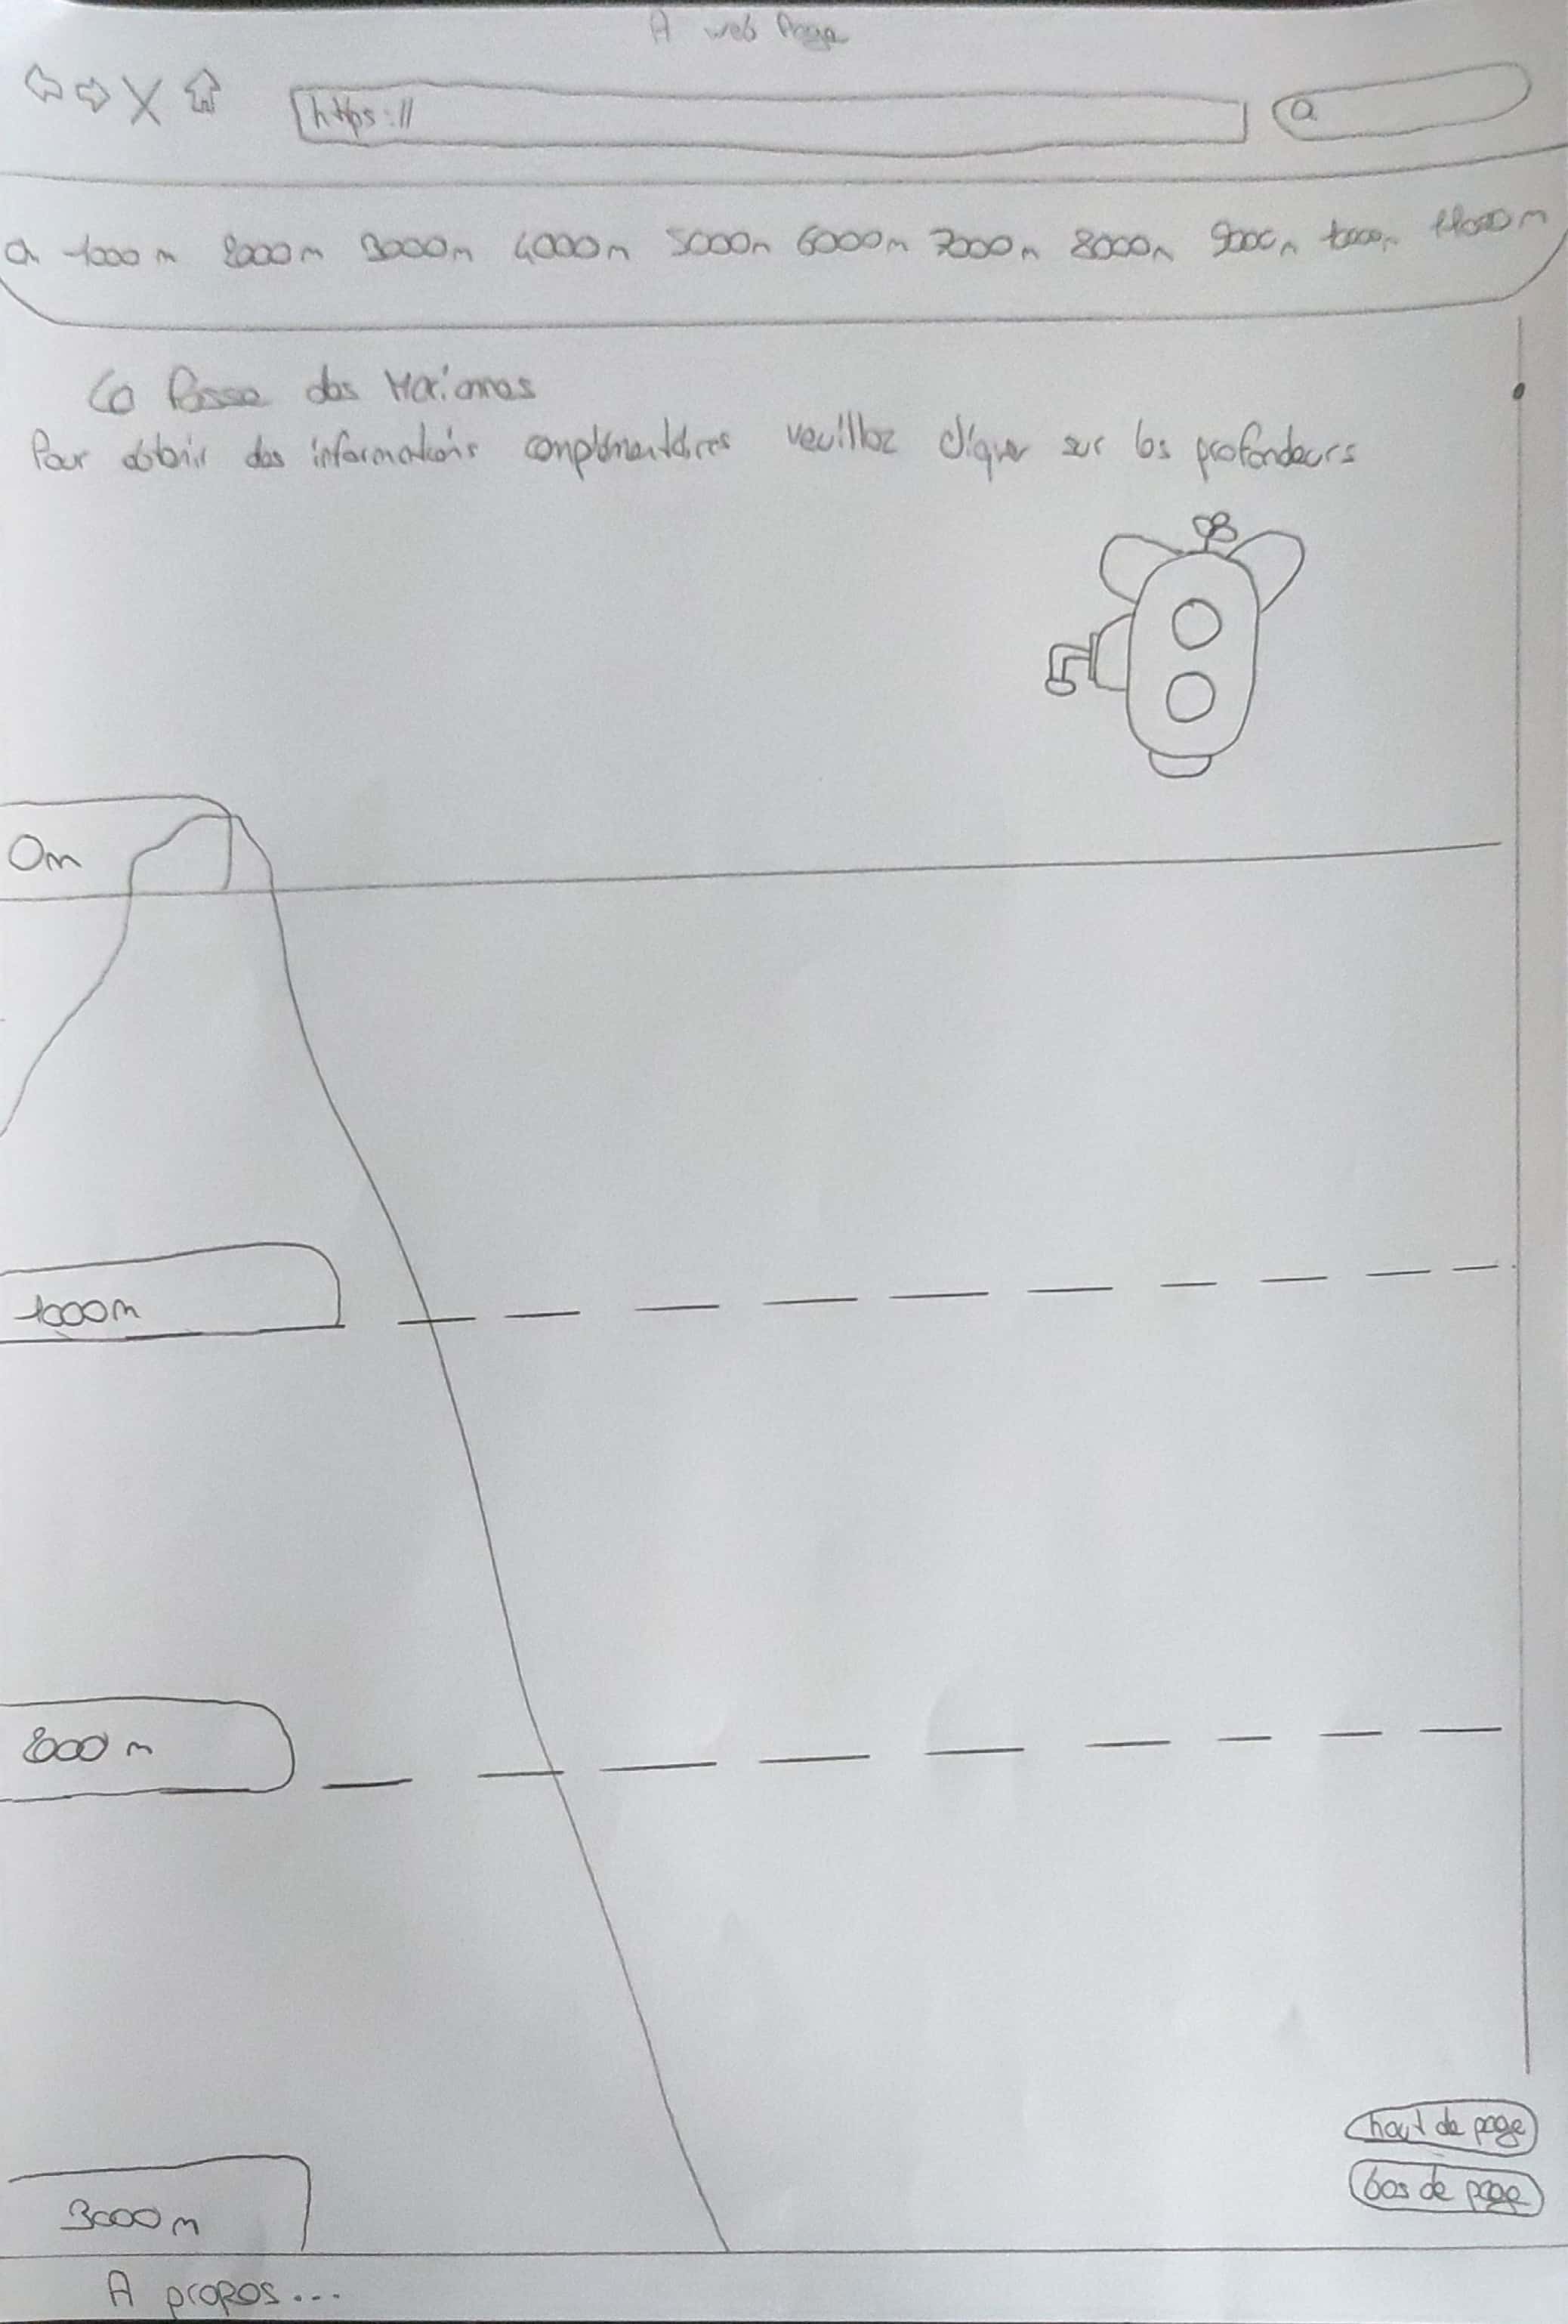 A web Page
https://
1000 m 2000 m 3000 m 4000 m 5000 m 6000 m 7000 m 8000 m 9000 m 11000 m
La Fosse des Mariannes
Pour obtenir des informations complémentaires veuillez cliquer sur les profondeurs
0m
1000 m
2000 m
3000 m
haut de page
bas de page
A propos...